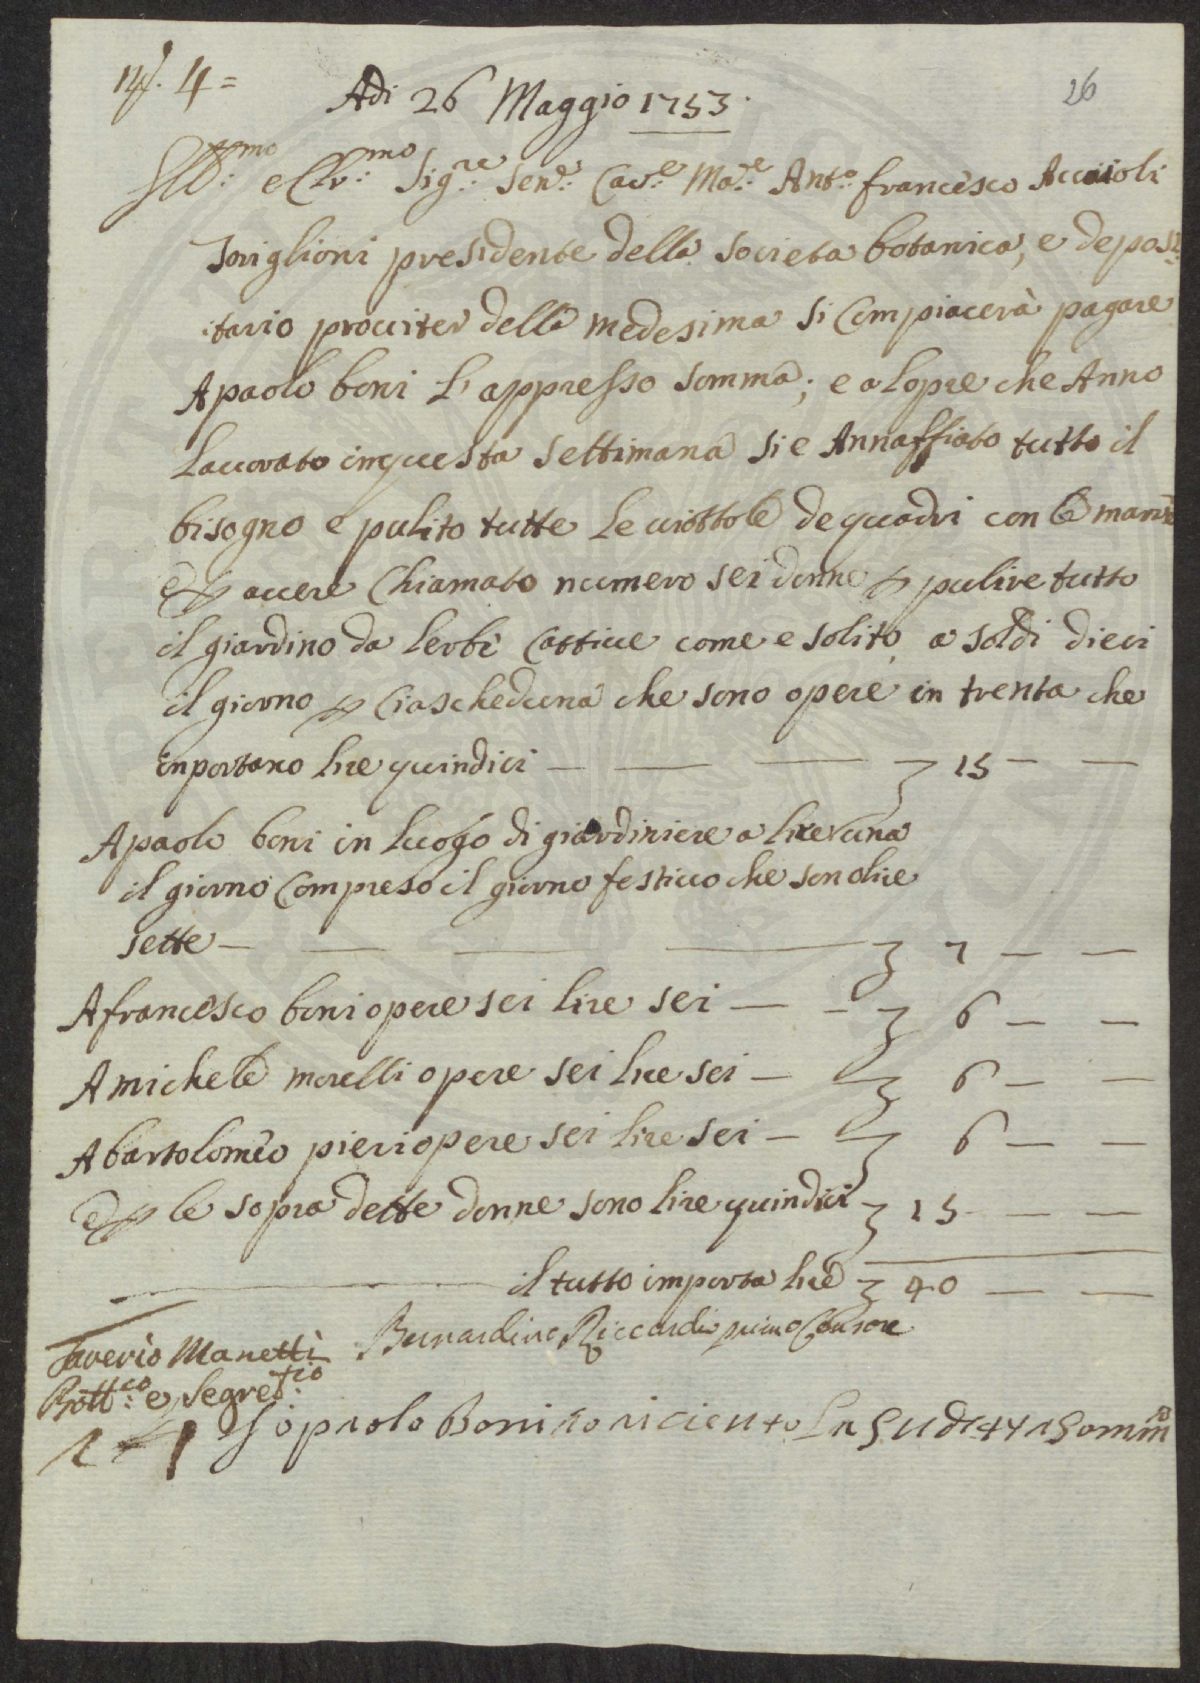 4= Adi 26 Maggio 1753. 26
Ill:mo e Clr:mo Sig:re Sen:e Cav:e Ma:e Ant:o francesco Acciaioli
Toriglioni presidente della Societa botanica, e deposi:
:tario della medesima si Compiacerà pagare
A paolo boni L'appresso somma; e a lopre che Anno
Lauorato inquesta settimana si e Annaffiato tutto il
bisogno e pulito tutte Le uiottole de quadri con le
e p auere Chiamato numero sei donne p pulire tutto
il giardino da lerbe Cattiue come e solito, a soldi dieci
il giorno p Ciascheduna che sono opere in trenta che
inportano lire quindici — — — 15 — —
A paolo boni in luogo di giardiniere a lire una
il giorno Compreso il giorno festiuo che sono lire
sette — — — — 7 — —
A francesco boni opere sei lire sei — - 6 — —
A michele morelli opere sei lire sei — 6 — —
A bartolomeo pieri opere sei lire sei — 6 — —
e p le sopra dette donne sono lire quindici 15 — —
il tutto importa lire 40 — —
Bernardino Riccardi primo Censore
Saverio Manetti
Bott:co e Segret:rio
Io paolo Boni o riceuuto La Sud:ta Somm:a